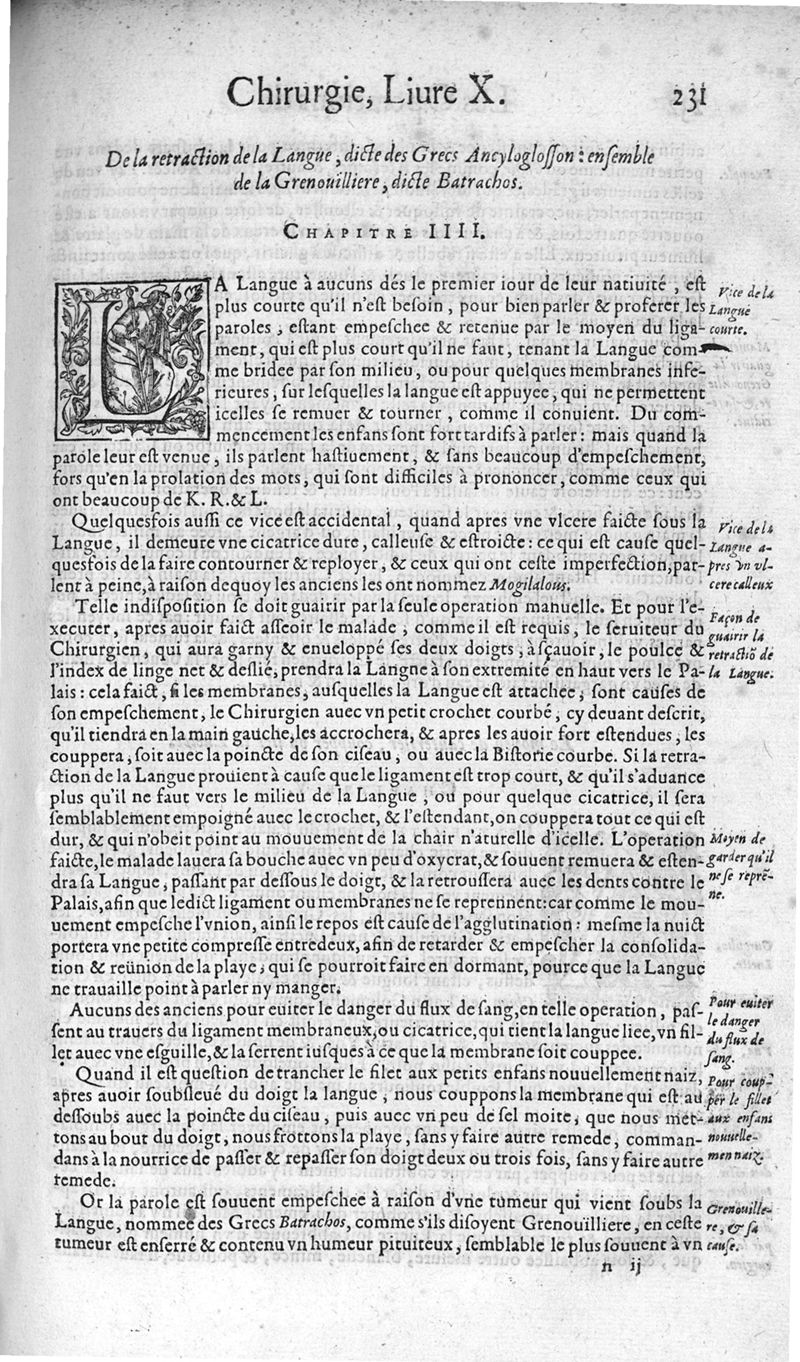 Chirurgie, Liure X. 231
De la retraction de la Langue, dicte des Grecs Ancyloglosson : ensemble
de la Grenouilliere, dicte Batrachos.
CHAPITRE IIII.
LA Langue à aucuns dés le premier iour de leur natiuité, est
plus courte qu'il n'est besoin, pour bien parler & proferer les
paroles, estant empeschee & retenue par le moyen du liga-
ment, qui est plus court qu'il ne faut, tenant la Langue com-
me bridee par son milieu, ou pour quelques membranes infe-
rieures, sur lesquelles la langue est appuyee, qui ne permettent
icelles se remuer & tourner, comme il conuient. Du com-
mencement les enfans sont fort tardifs à parler : mais quand la
parole leur est venue, ils parlent hastiuement, & sans beaucoup d'empeschement,
fors qu'en la prolation des mots, qui sont difficiles à prononcer, comme ceux qui
ont beaucoup de K. R. & L.
Vice de la
Langue
courte.
Quelquesfois aussi ce vice est accidental, quand apres vne vlcere faicte sous la
Langue, il demeure vne cicatrice dure, calleuse & estroicte : ce qui est cause quel-
quesfois de la faire contourner & reployer, & ceux qui ont ceste imperfection, par-
lent à peine, à raison dequoy les anciens les ont nommez Mogilalous.
Vice de la
Langue a-
pres vn vl-
cere calleux
Telle indisposition se doit guairir par la seule operation manuelle. Et pour l'e-
xecuter, apres auoir faict asseoir le malade, comme il est requis, le seruiteur du
Chirurgien, qui aura garny & enueloppé ses deux doigts, à sçauoir, le poulce &
l'index de linge net & deslié, prendra la Langne à son extremité en haut vers le Pa-
lais : cela faict, si les membranes, ausquelles la Langue est attachee, sont causes de
son empeschement, le Chirurgien auec vn petit crochet courbé, cy deuant descrit,
qu'il tiendra en la main gauche, les accrochera, & apres les auoir fort estendues, les
couppera, soit auec la poincte de son ciseau, ou auec la Bistorie courbe. Si la retra-
ction de la Langue prouient à cause que le ligament est trop court, & qu'il s'aduance
plus qu'il ne faut vers le milieu de la Langue, ou pour quelque cicatrice, il sera
semblablement empoigné auec le crochet, & l'estendant, on couppera tout ce qui est
dur, & qui n'obeit point au mouuement de la chair n'aturelle d'icelle. L'operation
faicte, le malade lauera sa bouche auec vn peu d'oxycrat, & souuent remuera & esten-
dra sa Langue, passant par dessous le doigt, & la retroussera auec les dents contre le
Palais, afin que ledict ligament ou membranes ne se reprennent : car comme le mou-
uement empesche l'vnion, ainsi le repos est cause de l'agglutination : mesme la nuict
portera vne petite compresse entredeux, afin de retarder & empescher la consolida-
tion & reünion de la playe, qui se pourroit faire en dormant, pource que la Langue
ne trauaille point à parler ny manger.
Façon de
guairir la
retractiõ de
la Langue.
Moyen de
garder qu'il
ne se reprẽ-
ne.
Aucuns des anciens pour euiter le danger du flux de sang, en telle operation, pas-
sent au trauers du ligament membraneux, ou cicatrice, qui tient la langue liee, vn fil-
let auec vne esguille, & la serrent iusques à ce que la membrane soit couppee.
Pour euiter
le danger
du flux de
sang.
Quand il est question de trancher le filet aux petits enfans nouuellement naiz,
apres auoir soubsleué du doigt la langue, nous couppons la membrane qui est au
dessoubs auec la poincte du ciseau, puis auec vn peu de sel moite, que nous met-
tons au bout du doigt, nous frottons la playe, sans y faire autre remede, comman-
dans à la nourrice de passer & repasser son doigt deux ou trois fois, sans y faire autre
remede.
Pour coup-
per le fillet
aux enfans
nouuelle-
men naiz.
Or la parole est souuent empeschee à raison d'vne tumeur qui vient soubs la
Langue, nommee des Grecs Batrachos, comme s'ils disoyent Grenouïlliere, en ceste
tumeur est enserré & contenu vn humeur pituiteux, semblable le plus souuent à vn
Grenouille-
re, & sa
cause.
n ij